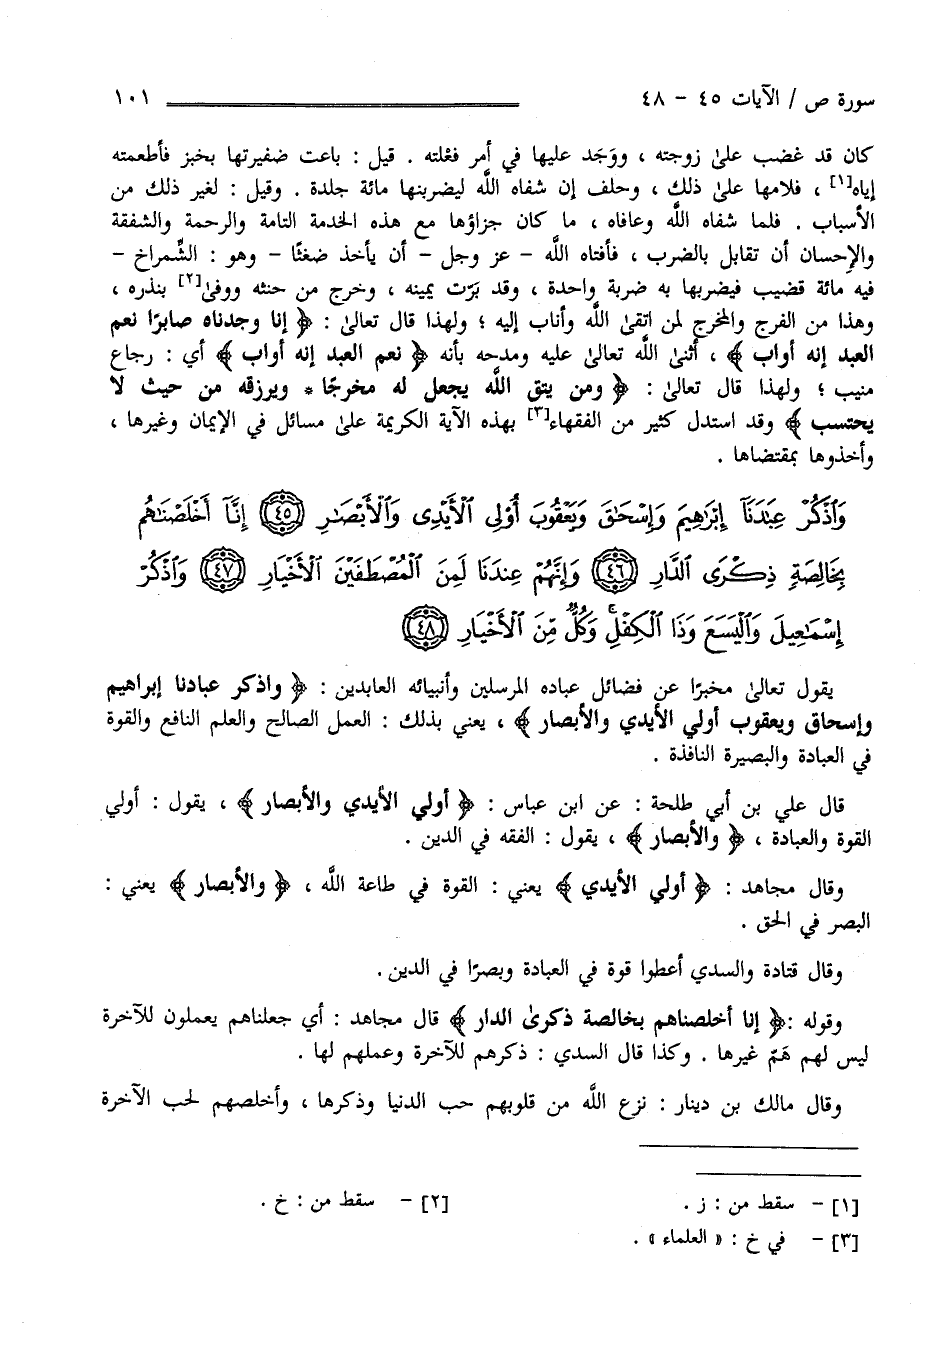 سورة ص / الآيات ٤٥ - ٤٨ ١٠١
كان قد غضب علىٰ زوجته ، ووَجَد عليها في أمر فعْلته . قيل : باعت ضفيرتها بخبز فأطعمته
إياه[١] ، فلامها علىٰ ذلك ، وحلف إن شفاه اللَّه ليضربنها مائة جلدة . وقيل : لغير ذلك من
الأسباب . فلما شفاه اللَّه وعافاه ، ما كان جزاؤها مع هذه الخدمة التامة والرحمة والشفقة
والإحسان أن تقابل بالضرب ، فأفتاه اللَّه - عز وجل - أن يأخذ ضغثًا - وهو : الشِّمراخ -
فيه مائة قضيب فيضربها به ضربة واحدة ، وقد بَرّت يمينه ، وخرج من حنثه ووفىٰ[٢] بنذره ،
وهذا من الفرج والمخرج لمن اتقىٰ اللَّه وأناب إليه ؛ ولهذا قال تعالىٰ : ﴿ إنا وجدناه صابرًا نعم
العبد إنه أواب ﴾ ، أثنىٰ اللَّه تعالىٰ عليه ومدحه بأنه ﴿ نعم العبد إنه أواب ﴾ أي : رجاع
منيب ؛ ولهذا قال تعالىٰ : ﴿ ومن يتق اللَّه يجعل له مخرجًا * ويرزقه من حيث لا
يحتسب ﴾ وقد استدل كثير من الفقهاء[٣] بهذه الآية الكريمة علىٰ مسائل في الإيمان وغيرها ،
وأخذوها بمقتضاها .
وَٱذۡكُرۡ عِبَٰدَنَآ إِبۡرَٰهِيمَ وَإِسۡحَٰقَ وَيَعۡقُوبَ أُوْلِي ٱلۡأَيۡدِي وَٱلۡأَبۡصَٰرِ ﴿٤٥﴾ إِنَّآ أَخۡلَصۡنَٰهُم
بِخَالِصَةٖ ذِكۡرَى ٱلدَّارِ ﴿٤٦﴾ وَإِنَّهُمۡ عِندَنَا لَمِنَ ٱلۡمُصۡطَفَيۡنَ ٱلۡأَخۡيَارِ ﴿٤٧﴾ وَٱذۡكُرۡ
إِسۡمَٰعِيلَ وَٱلۡيَسَعَ وَذَا ٱلۡكِفۡلِۖ وَكُلّٞ مِّنَ ٱلۡأَخۡيَارِ ﴿٤٨﴾
يقول تعالىٰ مخبرًا عن فضائل عباده المرسلين وأنبيائه العابدين : ﴿ واذكر عبادنا إبراهيم
وإسحاق ويعقوب أولي الأيدي والأبصار ﴾ ، يعني بذلك : العمل الصالح والعلم النافع والقوة
في العبادة والبصيرة النافذة .
قال علي بن أبي طلحة : عن ابن عباس : ﴿ أولي الأيدي والأبصار ﴾ ، يقول : أولي
القوة والعبادة ، ﴿ والأبصار ﴾ ، يقول : الفقه في الدين .
وقال مجاهد : ﴿ أولي الأيدي ﴾ يعني : القوة في طاعة اللَّه ، ﴿ والأبصار ﴾ يعني :
البصر في الحق .
وقال قتادة والسدي أعطوا قوة في العبادة وبصرًا في الدين .
وقوله :﴿ إنا أخلصناهم بخالصة ذكرىٰ الدار ﴾ قال مجاهد : أي جعلناهم يعملون للآخرة
ليس لهم هَمّ غيرها . وكذا قال السدي : ذكرهم للآخرة وعملهم لها .
وقال مالك بن دينار : نزع اللَّه من قلوبهم حب الدنيا وذكرها ، وأخلصهم لحب الآخرة
[١] - سقط من : ز . [٢] - سقط من : خ .
[٣] - في خ : « العلماء » .